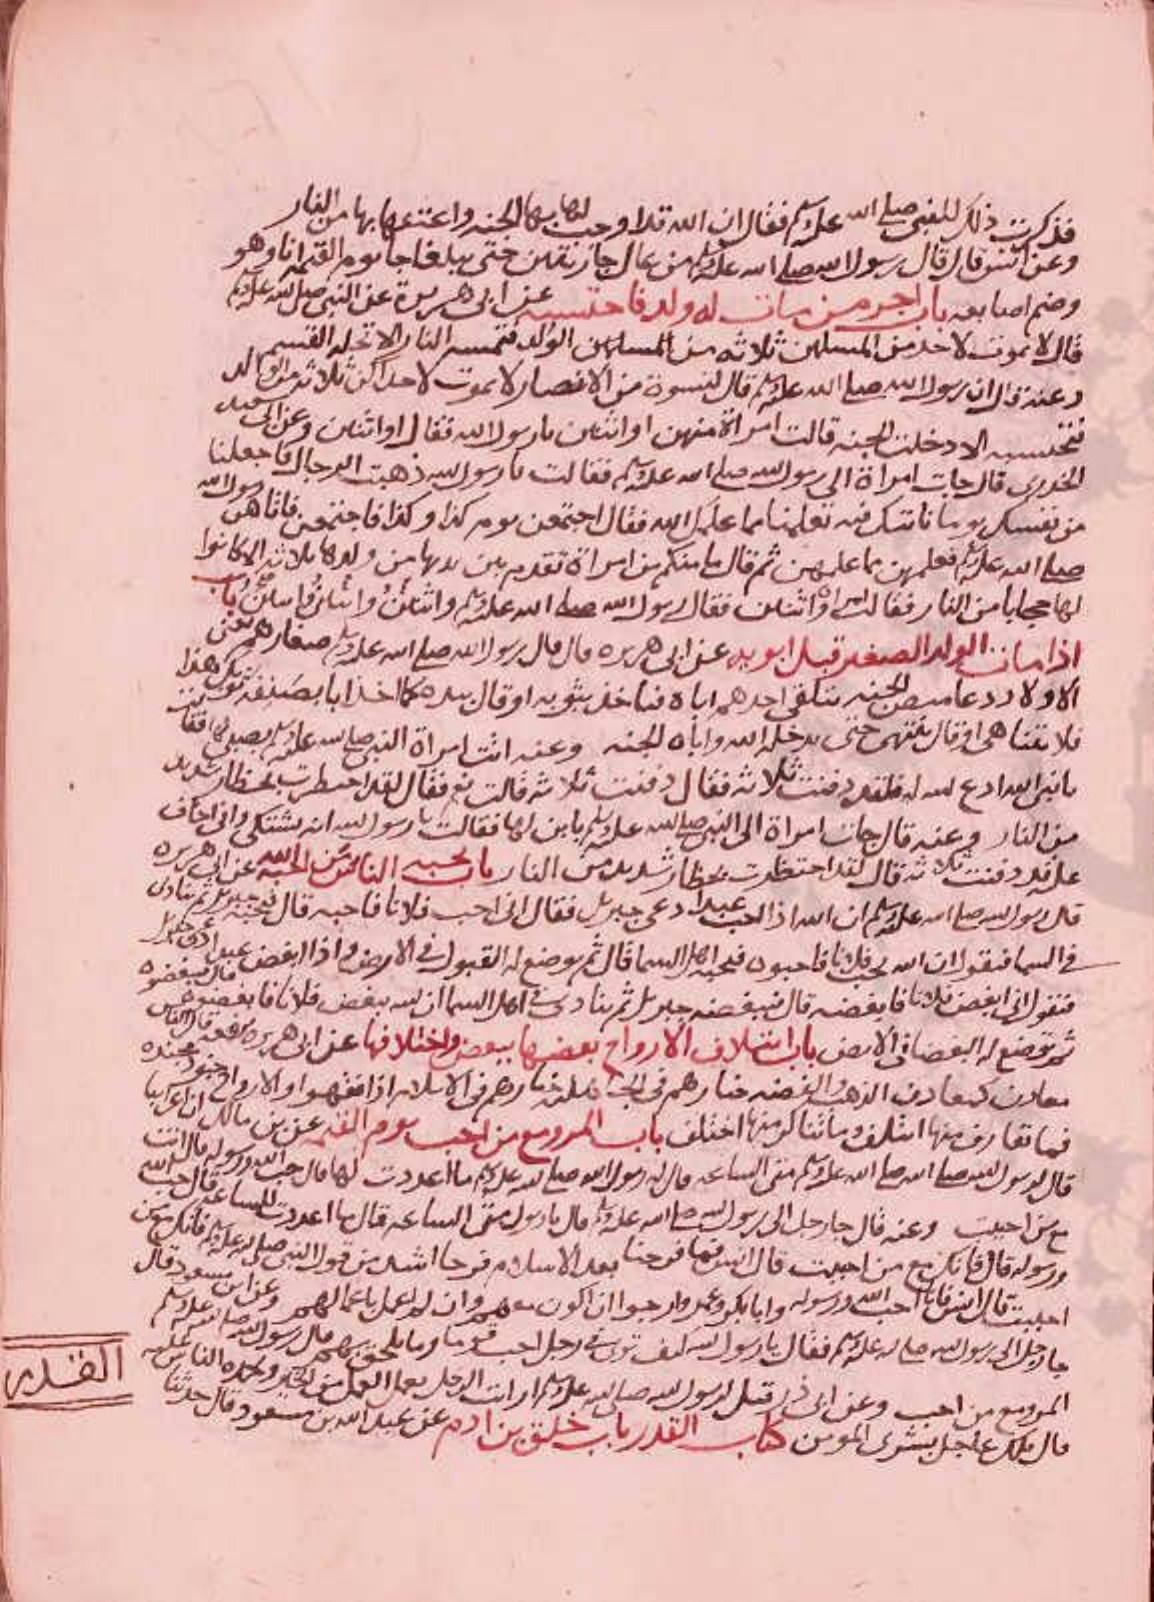 فذكرت ذلك للنبي صلى الله عليه وسلم فقال ان الله قد اوجب لها بها الجنه واعتقها بها من النار
وعن انس قال قال رسول الله صلى الله عليه وسلم من عال جاريتين حتى يبلغا جا يوم القيمه انا وهو
وضم اصابعه باب اجر من مات له ولد فاحتسبه عن ابى هريرة عن النبي صلى الله عليه وسلم
قال لا يموت لاحد من المسلمين ثلاثه من الولد فتمسه النار الا تحله القسم
وعنه قال ان رسول الله صلى الله عليه وسلم قال لنسوة من الانصار لا يموت لاحداكن ثلاثه من الولد
فتحتسبه الا دخلت الجنه قالت امراة منهن او اثنين يا رسول الله فقال او اثنين وعن ابى سعيد
الخدرى قال جات امراة الى رسول الله صلى الله عليه وسلم فقالت يا رسول الله ذهبت الرجال فاجعل لنا
من نفسك يوما ناتيك فيه تعلمنا مما علمك الله فقال اجتمعن يوم كذا وكذا فاجتمعن فاتاهن رسول الله
صلى الله عليه وسلم فعلمهن مما علمه ثم قال ما منكن من امراة تقدم بين يديها من ولدها ثلاثه الا كانوا
لها حجابا من النار فقالت امراة واثنين فقال رسول الله صلى الله عليه وسلم واثنين واثنين واثنين باب
اذا مات الولد الصغير قبل ابويه عن ابى هريره قال قال رسول الله صلى الله عليه وسلم صغارهم يعنى
الاولاد دعاميص الجنه يتلقى احدهم اباه فياخذ بثوبه او قال بيده كما اخذ انا بصنفة ثوبك هذا
فلا يتناهى او قال ينتهى حتى يدخله الله واباه الجنه وعنه اتت امراة النبي صلى الله عليه وسلم بصبى لها فقالت
يا نبى الله ادع الله له فلقد دفنت ثلاثه فقال دفنت ثلاثه قالت نعم فقال لقد احتظرت بحظار شديد
من النار وعنه قال جات امراة الى النبي صلى الله عليه وسلم بابن لها فقالت يا رسول الله انه يشتكى وانى اخاف
عليه قد دفنت ثلاثه قال لقد احتظرت بحظار شديد من النار باب عن ابى هريره
قال رسول الله صلى الله عليه وسلم ان الله اذا احب عبدا دعى جبريل فقال انى احب فلانا فاحبه قال فيحبه جبريل ثم ينادى
فى السما فيقول ان الله يحب فلانا فاحبوه فيحبه اهل السما قال ثم يوضع له القبول فى الارض واذا ابغض عبدا دعى جبريل
فيقول انى ابغض فلانا فابغضه قال فيبغضه جبريل ثم ينادى فى اهل السما ان الله يبغض فلانا فابغضوه قال فيبغضوه
ثم توضع له البغضا فى الارض باب ائتلاف الارواح بعضها ببعض واختلافها عن ابى هريره يرفعه قال الناس
معادن كمعادن الذهب والفضه خيارهم فى الجاهليه خيارهم فى الاسلام اذا فقهوا والارواح جنود مجنده
فما تعارف منها ائتلف وما تناكر منها اختلف باب المرء مع من احب يوم القيمه عن انس بن مالك ان اعرابيا
قال لرسول الله صلى الله عليه وسلم متى الساعه قال له رسول الله صلى الله عليه وسلم ما اعددت لها قال حب الله ورسوله قال انت
مع من احببت وعنه قال جا رجل الى رسول الله صلى الله عليه وسلم قال يا رسول الله متى الساعه قال ما اعددت للساعه قال حب الله
ورسوله قال فانك مع من احببت قال انس فما فرحنا بعد الاسلام فرحا اشد من قول النبي صلى الله عليه وسلم فانك مع من
احببت قال انس فانا احب الله ورسوله وابا بكر وعمر وارجوا ان اكون معهم وان لم اعمل باعمالهم وعن ابن مسعود قال
جا رجل الى رسول الله صلى الله عليه وسلم فقال يا رسول الله كيف ترى فى رجل احب قوما ولما يلحق بهم قال رسول الله صلى الله عليه وسلم
المرء مع من احب وعن ابى ذر قيل لرسول الله صلى الله عليه وسلم ارايت الرجل يعمل العمل من الخير ويحمده الناس عليه
قال تلك عاجل بشرى المومن كتاب القدر باب خلق بن ادم عن عبد الله بن مسعود قال حدثنا
القدر